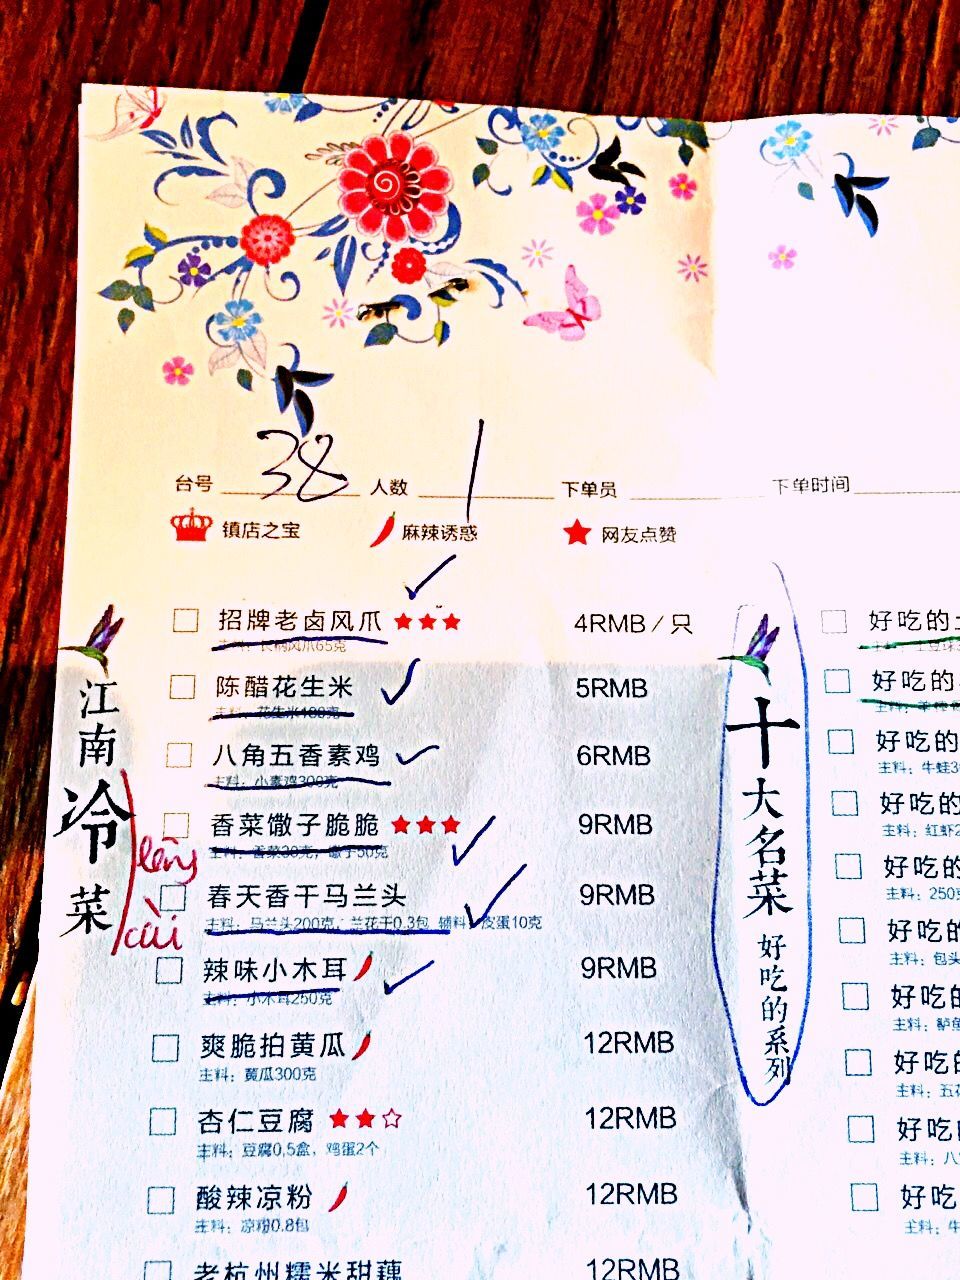 台号 38 人数 1 下单员 下单时间
镇店之宝 麻辣诱惑 网友点赞
江南冷菜
lěng
cài
招牌老卤风爪 4RMB／只
主料：长柄凤爪65克
陈醋花生米 5RMB
主料：花生米180克
八角五香素鸡 6RMB
主料：小素鸡300克
香菜馓子脆脆 9RMB
主料：香菜30克，馓子50克
春天香干马兰头 9RMB
主料：马兰头200克，兰花干0.3包 辅料：皮蛋10克
辣味小木耳 9RMB
主料：小木耳250克
爽脆拍黄瓜 12RMB
主料：黄瓜300克
杏仁豆腐 12RMB
主料：豆腐0.5盒，鸡蛋2个
酸辣凉粉 12RMB
主料：凉粉0.8包
老杭州糯米甜藕 12RMB
十大名菜
好吃的系列
好吃的
好吃的
好吃的
主料：牛蛙
好吃的
主料：红虾
好吃的
主料：250
好吃的
主料：包头
好吃的
主料：鲈鱼
好吃的
主料：五花
好吃
主料：八
好吃
主料：牛